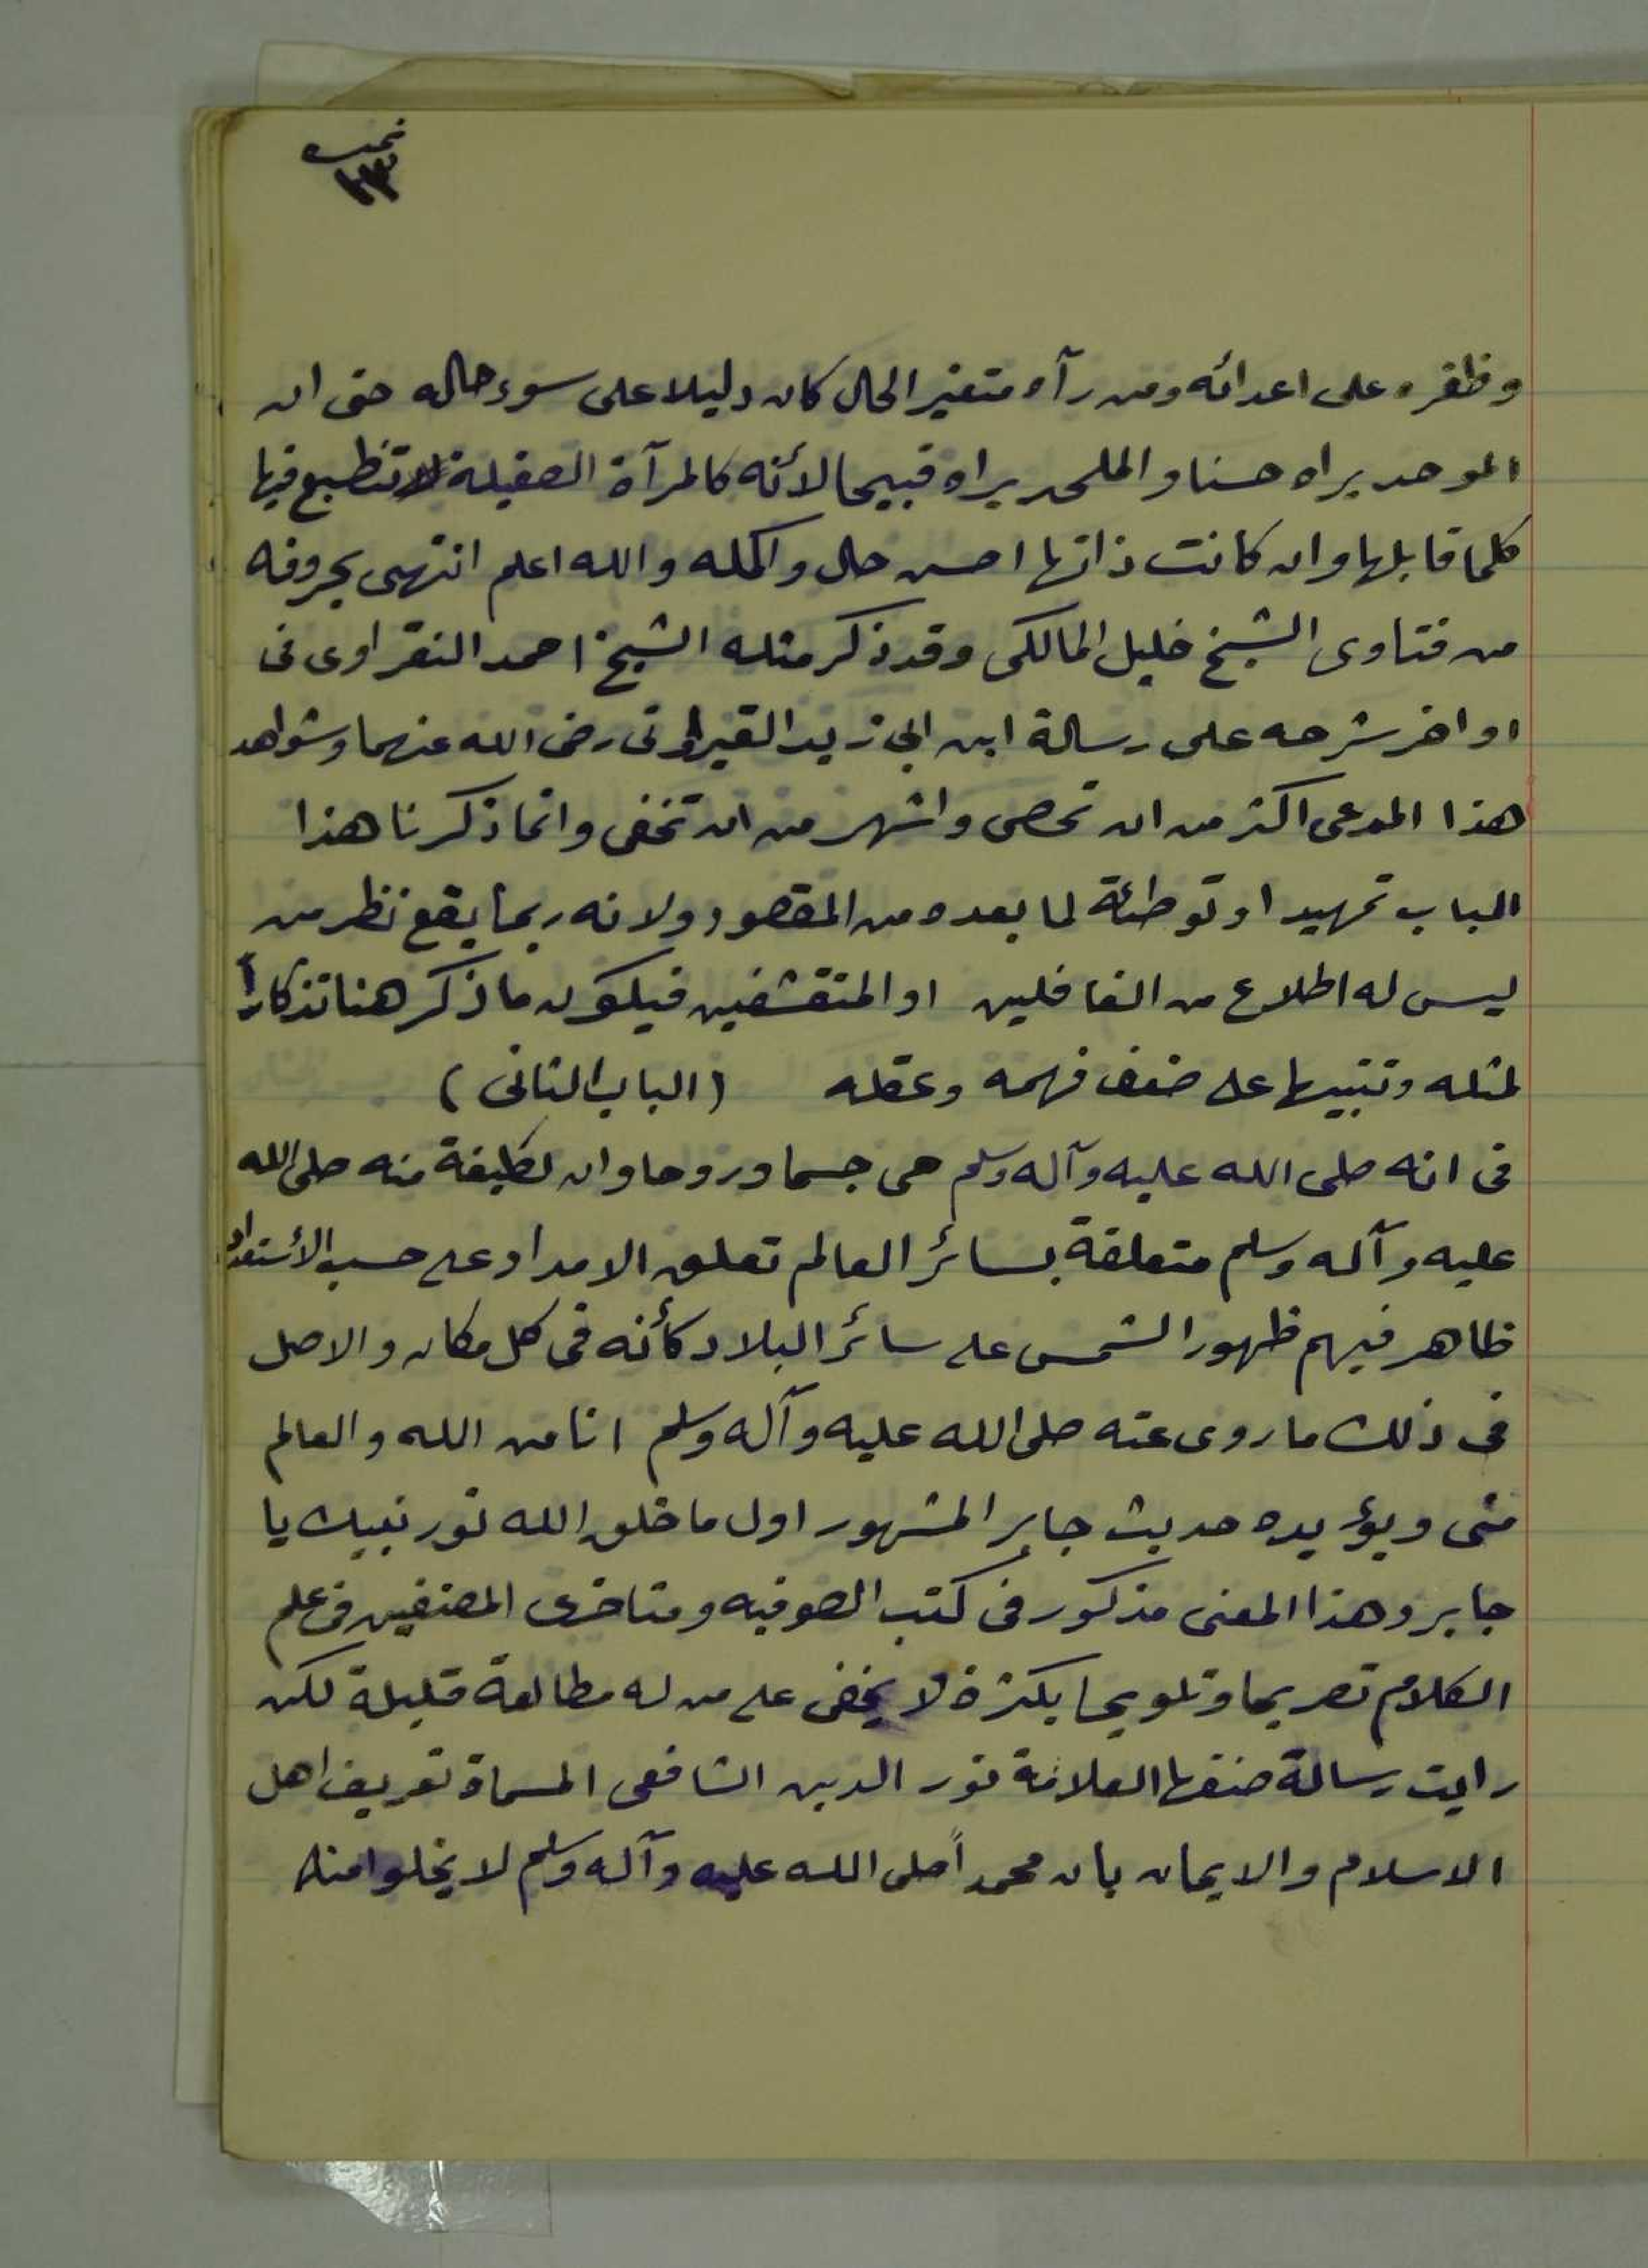 وظفره على اعدائه ومن رآه متغير الحال كان دليلا على سوء حاله حتى ان
الموحد يراه حسنا والملحد يراه قبيحا لأنه كالمرآة الصقيلة تنطبع فيها
كلما قابلها وان كانت ذاتها احسن حال واكمله والله اعلم انتهى بحروفه
من فتاوى الشيخ خليل المالكى وقد ذكر مثله الشيخ احمد النفراوى فى
اواخر شرحه على رسالة ابن ابى زيد القيراونى رضى الله عنهما وشواهد
هذا المدعى اكثر من ان تحصى واشهر من ان تخفى وانما ذكرنا هذا
الباب تمهيدا وتوطئة لما بعده من المقصود ولانه ربما يقع نظر من
ليس له اطلاع من الغافلين او المتقشفين فيكون ما ذكر هنا تذكارا
لمثله وتنبيها على ضعف فهمه وعقله (الباب الثانى)
فى انه صلى الله عليه وآله وسلم حى جسما وروحا وان لطيفة منه صلى الله
عليه وآله وسلم متعلقة بسائر العالم تعلق الامداد على حسب الأستعداد
ظاهر فيهم ظهور الشمس على سائر البلاد كأنه فى كل مكان والاصل
فى ذلك ما روى عنه صلى الله عليه وآله وسلم انا من الله والعالم
منى ويؤيده حديث جابر المشهور اول ما خلق الله نور نبيك يا
جابر وهذا المعنى مذكور فى كتب الصوفيه ومتاخرى المصنفين فى علم
الكلام تصريحا وتلويحا بكثرة لا يخفى على من له مطالعة قليلة لكن
رايت رسالة صنفها العلامة نور الدين الشافعى المسماة تعريف اهل
الاسلام والايمان بان محمدا صلى الله عليه وآله وسلم لا يخلوا منه